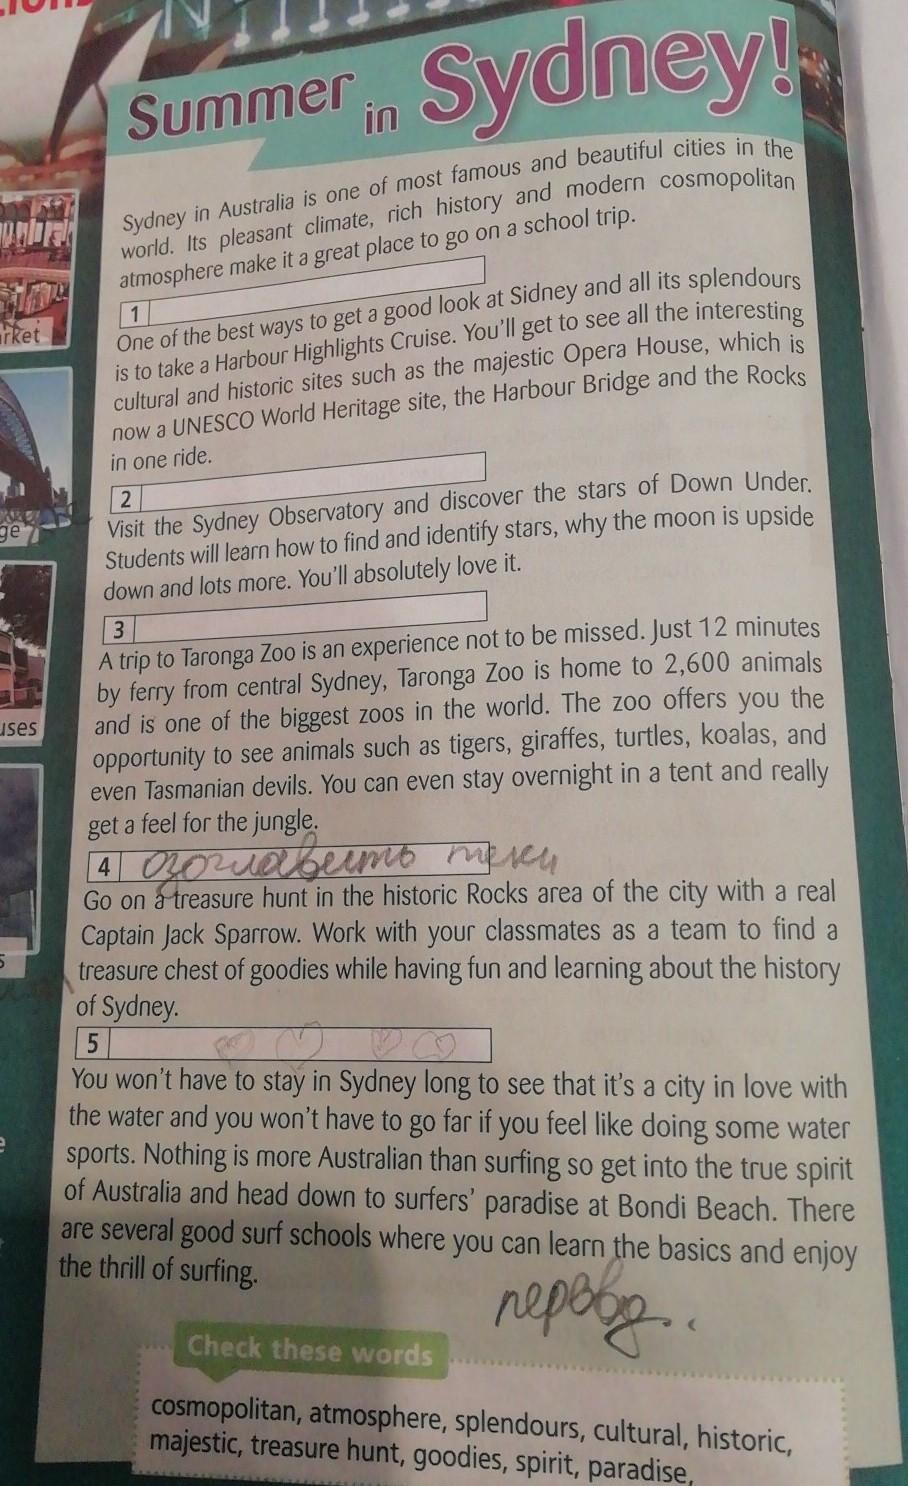 Summer in Sydney!
Sydney in Australia is one of most famous and beautiful cities in the
world. Its pleasant climate, rich history and modern cosmopolitan
atmosphere make it a great place to go on a school trip.
1
One of the best ways to get a good look at Sidney and all its splendours
is to take a Harbour Highlights Cruise. You'll get to see all the interesting
cultural and historic sites such as the majestic Opera House, which is
now a UNESCO World Heritage site, the Harbour Bridge and the Rocks
in one ride.
2
Visit the Sydney Observatory and discover the stars of Down Under.
Students will learn how to find and identify stars, why the moon is upside
down and lots more. You'll absolutely love it.
3
A trip to Taronga Zoo is an experience not to be missed. Just 12 minutes
by ferry from central Sydney, Taronga Zoo is home to 2,600 animals
and is one of the biggest zoos in the world. The zoo offers you the
opportunity to see animals such as tigers, giraffes, turtles, koalas, and
even Tasmanian devils. You can even stay overnight in a tent and really
get a feel for the jungle.
4 озоглавить
Go on a treasure hunt in the historic Rocks area of the city with a real
Captain Jack Sparrow. Work with your classmates as a team to find a
treasure chest of goodies while having fun and learning about the history
of Sydney.
5
You won't have to stay in Sydney long to see that it's a city in love with
the water and you won't have to go far if you feel like doing some water
sports. Nothing is more Australian than surfing so get into the true spirit
of Australia and head down to surfers' paradise at Bondi Beach. There
are several good surf schools where you can learn the basics and enjoy
the thrill of surfing.
Check these words
cosmopolitan, atmosphere, splendours, cultural, historic,
majestic, treasure hunt, goodies, spirit, paradise,
rket
ge
uses